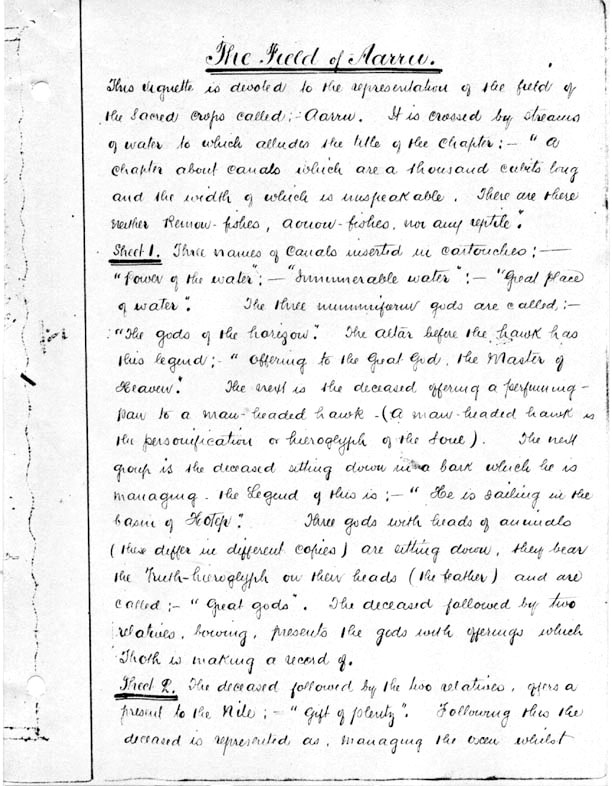 The Field of Aarru.
This vignette is devoted to the representation of the field of
the Sacred Crops called :- Aarru. It is crossed by streams
of water to which alludes the title of the Chapter :- "A
Chapter about Canals which are a thousand cubits long
and the width of which is unspeakable. There are there
neither Remow-fishes, aouow-fishes, nor any reptile".
Sheet 1. Three names of Canals inserted in cartouches ; —
"Power of the water" ; — "Innumerable water" : — "Great place
of water". The three mummiform gods are called, :-
"The gods of the horizon". The altar before the hawk has
this legend ; - "Offering to the Great God, the Master of
Heaven". The next is the deceased offering a perfuming-
pan to a man-headed hawk - (A man-headed hawk is
the personification or hieroglyph of the Soul). The next
group is the deceased sitting down in a bark which he is
managing - the Legend of this is ; - "He is sailing in the
basin of Hotep". Three gods with heads of animals
(these differ in different copies) are sitting down, they bear
the Truth-hieroglyph on their heads (the feather) and are
called ; - "Great gods". The deceased followed by two
relatives, bowing, presents the gods with offerings which
Thoth is making a record of.
Sheet 2. The deceased followed by the two relatives, offers a
present to the Nile ; - "Gift of plenty". Following this the
deceased is represented as, managing the oxen whilst